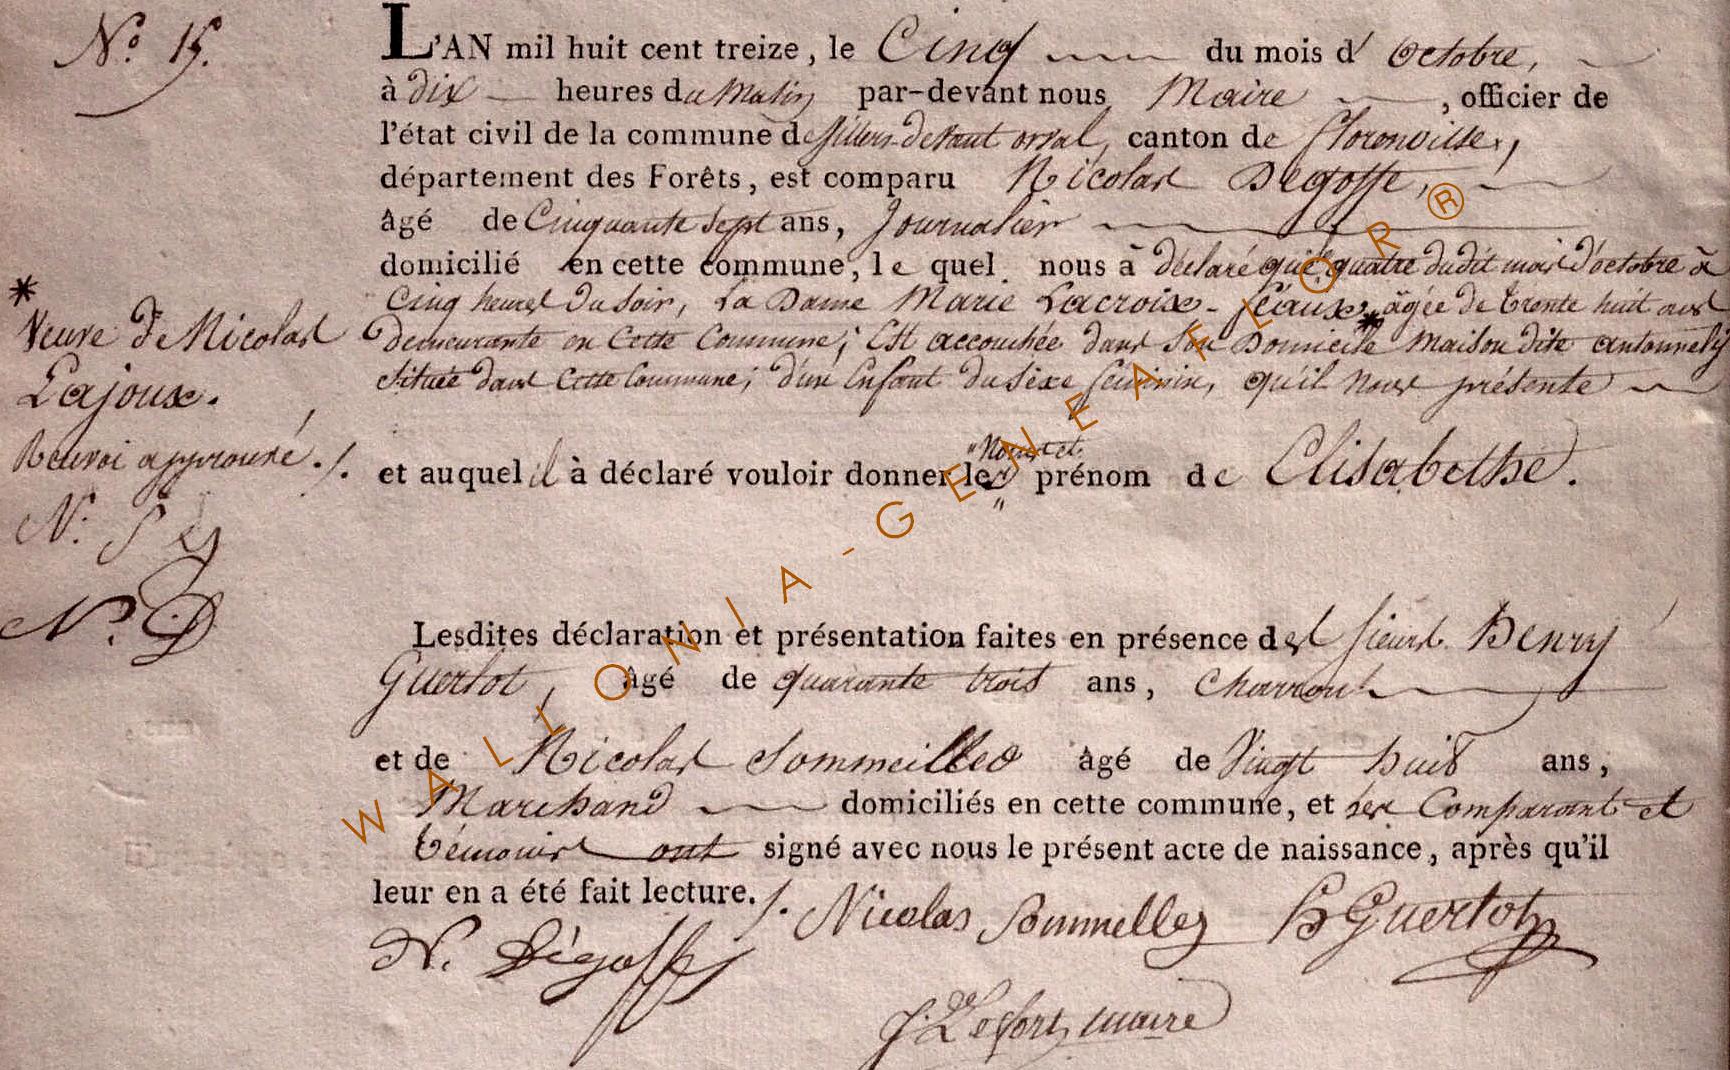 N.º 15.
L'AN mil huit cent treize, le Cinq du mois d' Octobre,
à dix heures du Matin par-devant nous Maire, officier de
l'état civil de la commune de Villers-devant orval, canton de Florenville,
département des Forêts, est comparu Nicolas Degoffe,
âgé de Cinquante sept ans, Journalier
domicilié en cette commune, le quel nous à déclaré que quatre dudit mois d'octobre à
Cinq heures du soir, La Dame Marie Lacroix- âgée de trente huit ans
demeurante en Cette Commune; Est accouchée dans son Domicile Maison dite
située dans Cette Commune; d'un Enfant du séxe féminin, qu'il nous présente
* Veuve de Nicolas
Lajoux.
Renvoi approuvé.
N.
N. D
et auquel il à déclaré vouloir donner les "Noms et" prénom de Elisabethe.
Lesdites déclaration et présentation faites en présence des sieurs Henry
Guerlot, âgé de quarante trois ans, Charron
et de Nicolas Sommeilles âgé de Vingt huit ans,
Marchand domiciliés en cette commune, et les Comparant et
témoins ont signé avec nous le présent acte de naissance, après qu'il
leur en a été fait lecture.
Nicolas Summelles H Guerlot
N. Dégoffe
J. Lefort maire
WALLONIA-GENEAFLOR®